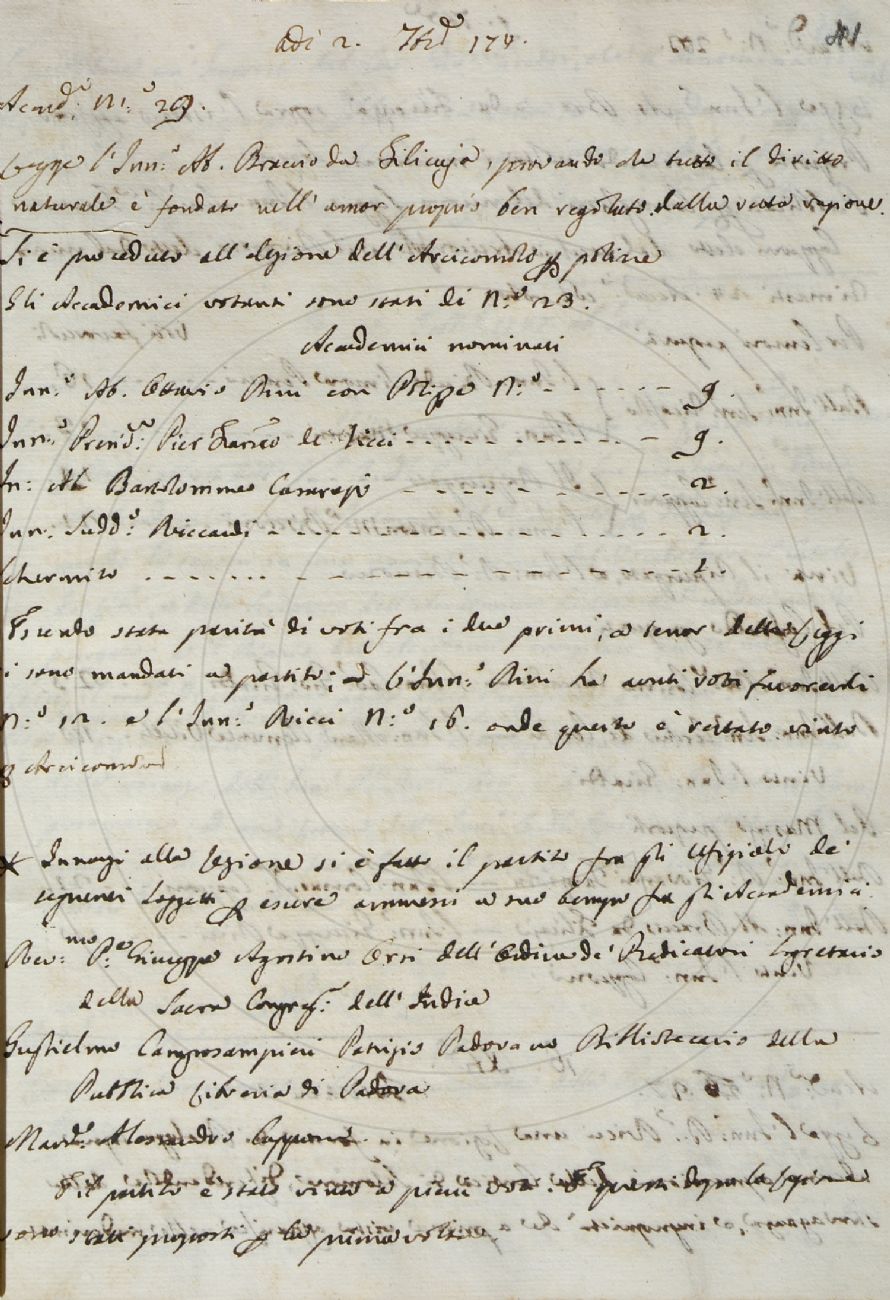 adì 2. 174.
41
Accad: N.º 29.
Legge l'Inn.º Ab. Braccio da Filicaja, provando che tutto il diritto
naturale è fondato nell'amor proprio ben regolato dalla retta ragione.
Si è proceduto all'elezione dell'Arciconsolo p polizie
Gli Accademici votanti sono stati di N.º 23.
Accademici nominati
Inn.º Ab. Ottavio Rini con Polize N.º 9.
Inn.º Pier de Ricci 9.
In: Ab Bartolommeo 2.
Inn. Sudd.º Riccardi 2.
Schermito 1.
Essendo stata parità di voti fra i due primi, a tenor delle Leggi
si sono mandati a partito; ed l'Inn.º Rini ha avuti voti favorevoli
N.º 12. e l'Inn.º Ricci N.º 16. onde questo è restato vinto
p Arciconsolo
Innanzi alla lezione si è fatto il partito fra gli Ufiziali de
seguenti soggetti p essere ammessi a suo tempo fra gli Accademici
Rev.mo P.e Giuseppe Agostino Orsi dell'Ordine de' Predicatori Segretario
della Sacra Congreg: dell'Indice
Guglielmo Camposampieri Patrizio Padovano Bibliotecario della
Pubblica Libreria di Padova
March: Alessandro Capponi
Il partito è stato vinto a pieni voti. E questi dopo la lezione
sono stati proposti p la prima volta